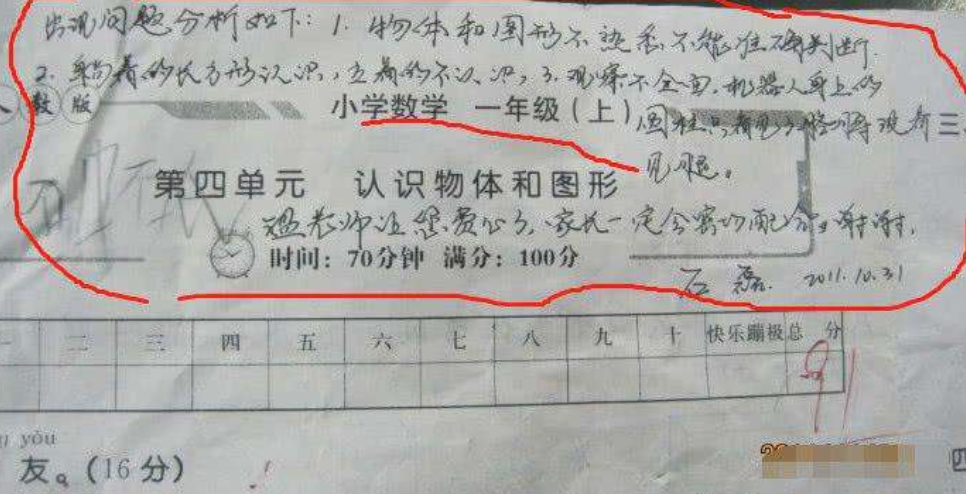 出现问题分析如下：1. 物体和图形不熟悉不能准确判断.
2. 躺着的长方形认识，立着的不认识，3. 观察不全面，机器人身上的
人教版
小学数学 一年级（上）
圆柱只看见了胳膊没看
见腿。
三、
第四单元 认识物体和图形
老师还您费心了、家长一定会密切配合。谢谢，
时间：70分钟 满分：100分
石磊. 2011.10.31
一 二 三 四 五 六 七 八 九 十 快乐蹦极 总 分
91
yǒu
友。（16分）
四